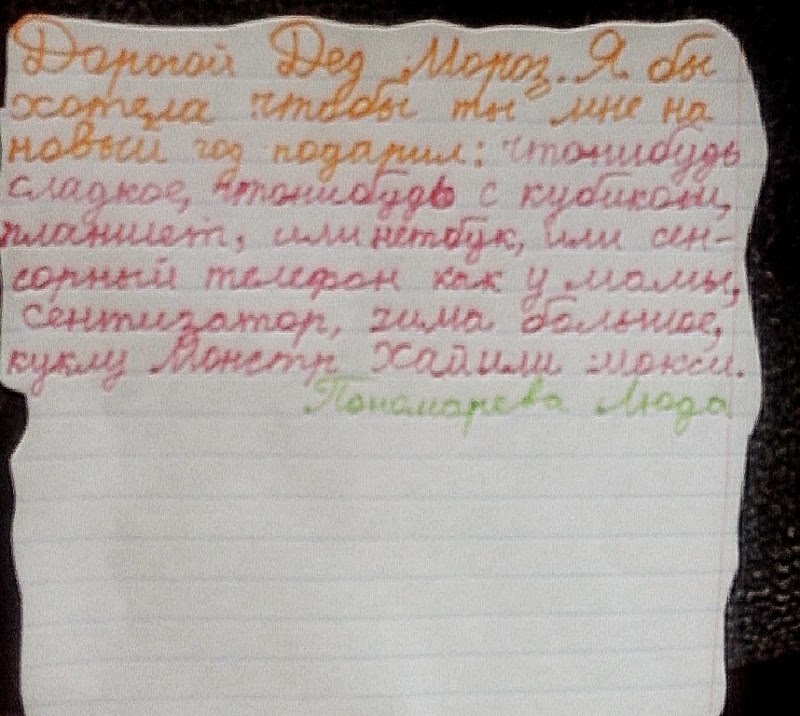 Дорогой Дед Мороз. Я бы
хотела чтобы ты мне на
новый год подарил: чтонибудь
сладкое, чтонибудь с кубиком,
планшет, или нетбук, или сен-
сорный телефон как у мамы,
сентизатор, чима большое,
куклу Монстр Хай или мокси.
Пономарева Люда